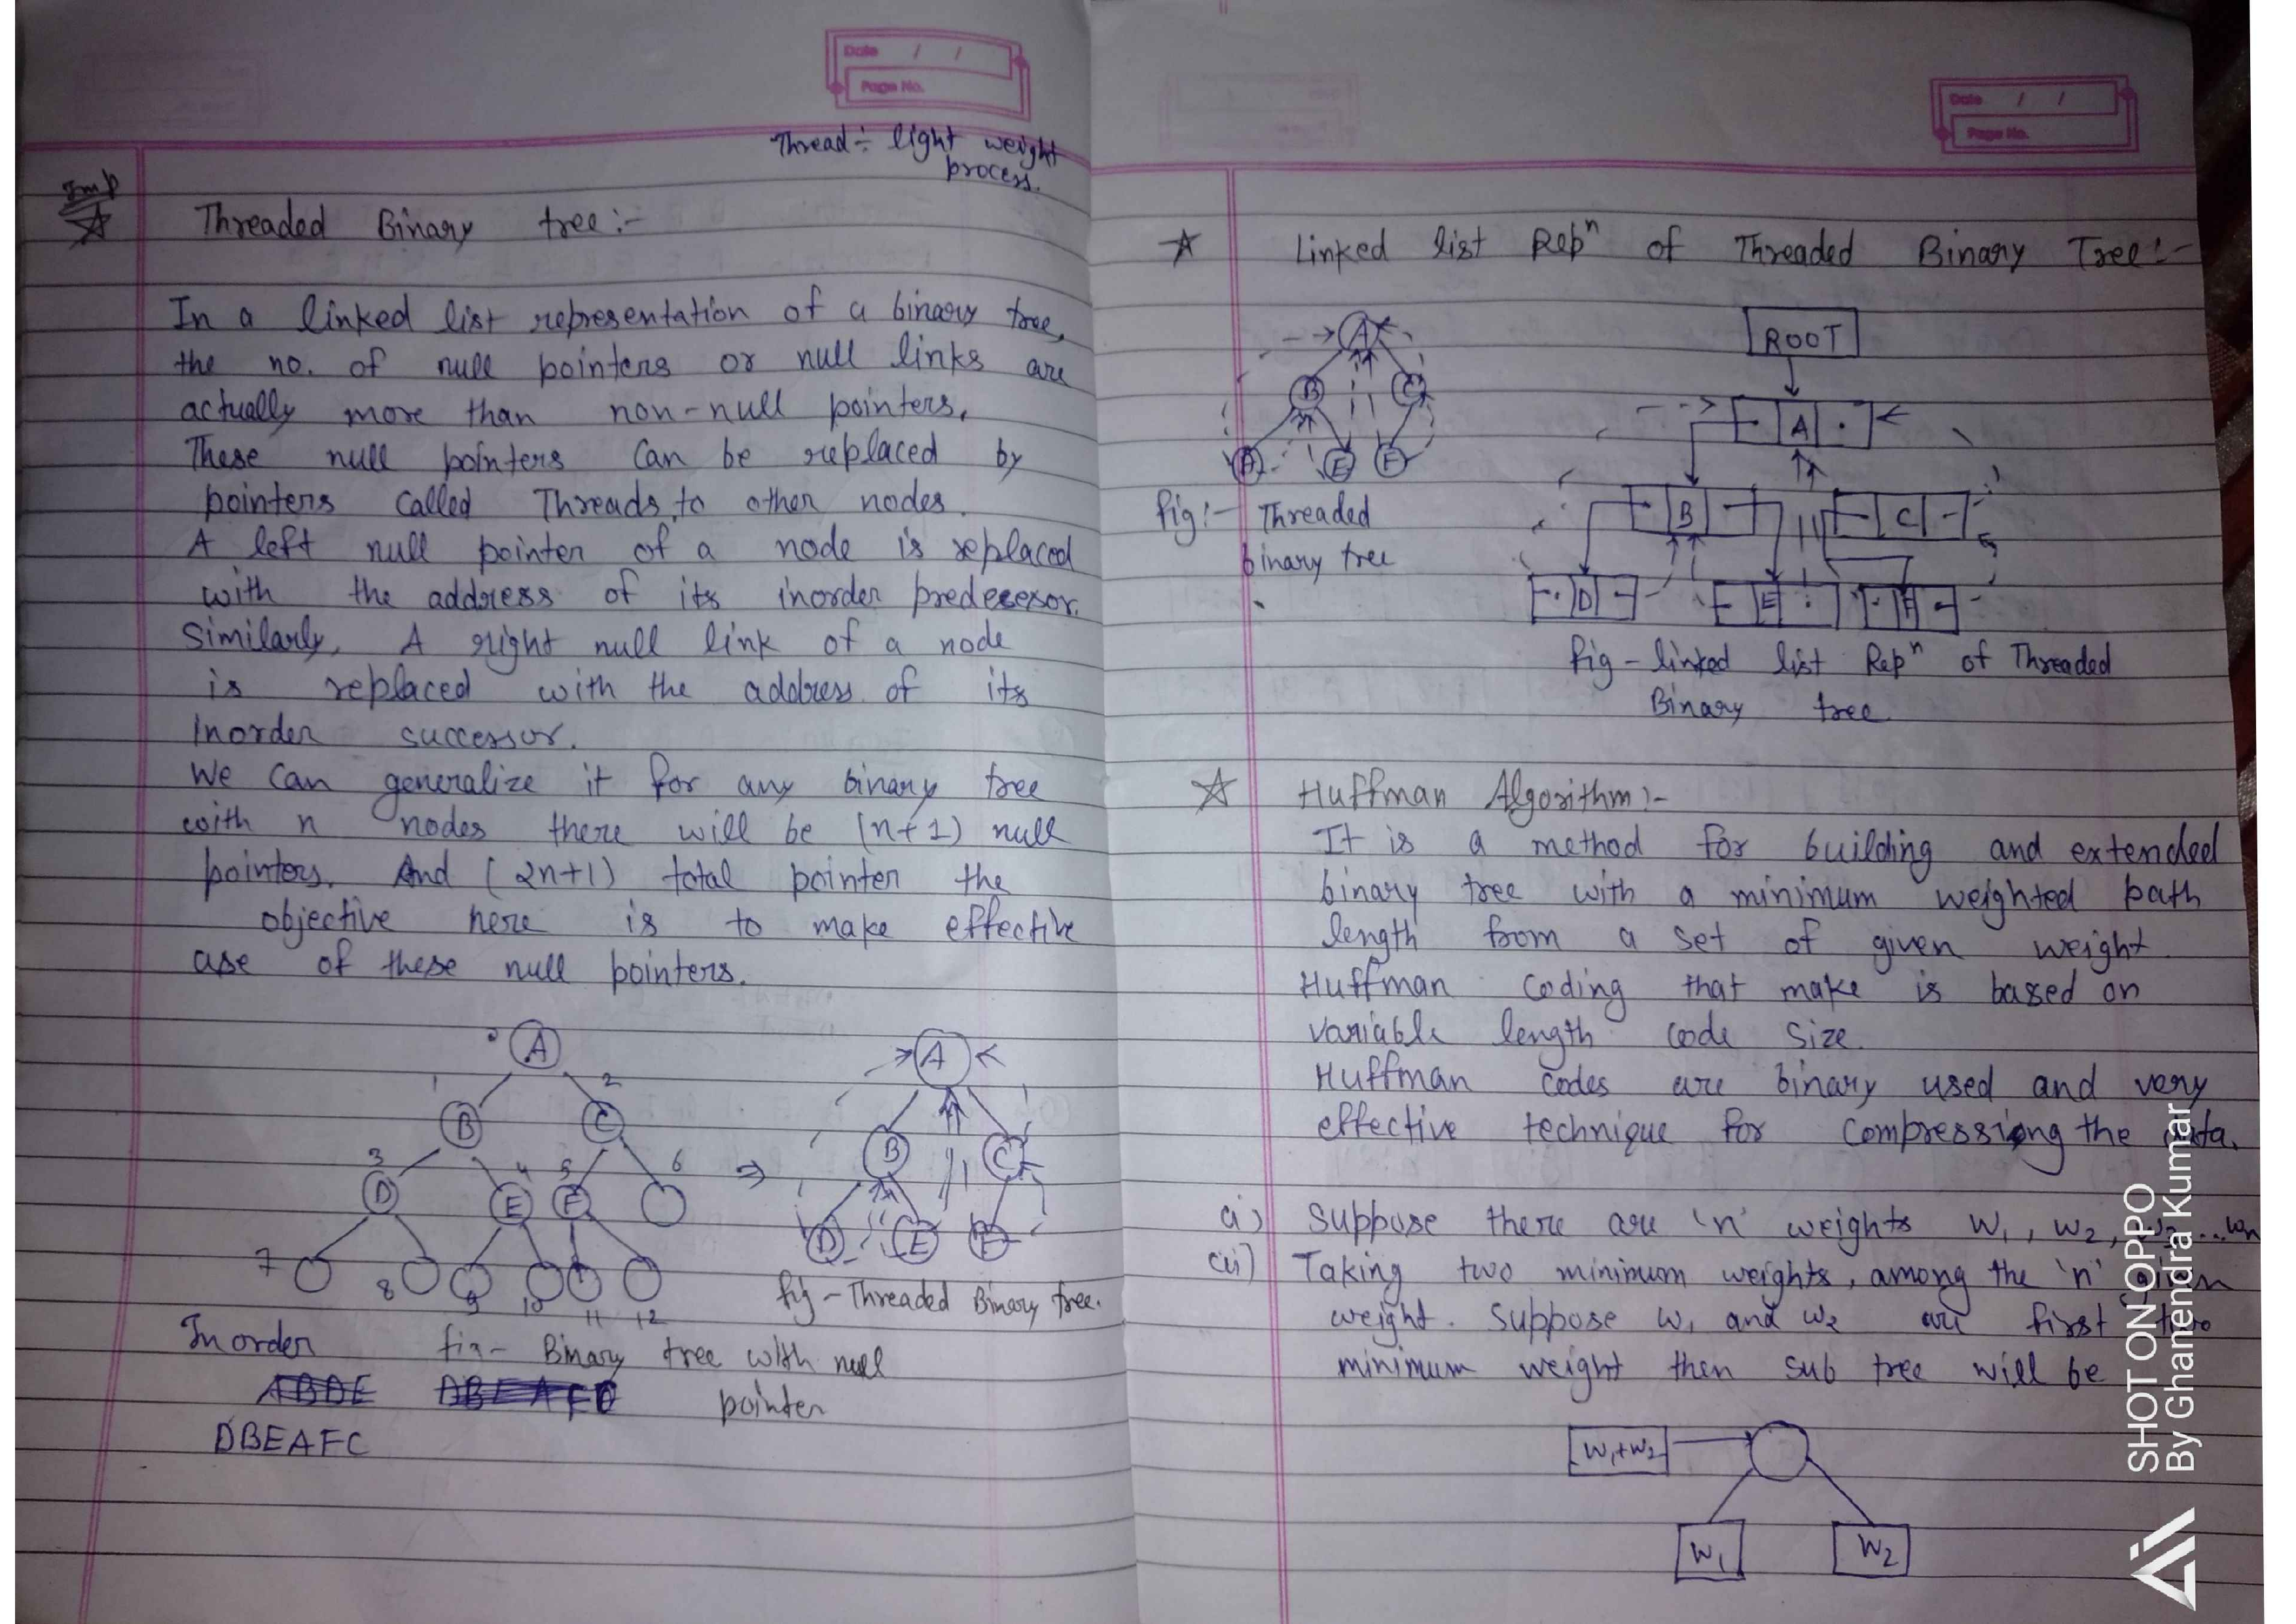 Date / /
Page No.
Thread ÷ light weight
process.
Imp
Threaded Binary tree :-
In a linked list representation of a binary tree,
the no. of null pointers or null links are
actually more than non-null pointers,
These null pointers can be replaced by
pointers called Threads, to other nodes.
A left null pointer of a node is replaced
with the address of its inorder predecesor.
Similarly, A right null link of a node
is replaced with the address of its
Inorder successor.
We can generalize it for any binary tree
with n nodes there will be (n+1) null
pointers. And (2n+1) total pointer the
objective here is to make effective
use of these null pointers.
A
1 2
B C
3 4 5 6
D E F
7 8 9 10 11 12
⇒
A
B C
D E F
fig - Threaded Binary tree.
Inorder
fig - Binary tree with null
pointer
DBEAFC
Date / /
Page No.
Linked list Repⁿ of Threaded Binary Tree :-
A
B C
D E F
fig :- Threaded
binary tree
ROOT
A
B C
D E F
fig - linked list Repⁿ of Threaded
Binary tree
Huffman Algorithm :-
It is a method for building and extended
binary tree with a minimum weighted path
length from a set of given weight.
Huffman coding that make is based on
variable length code size.
Huffman codes are binary used and very
effective technique for compressing the data.
(i) Suppose there are 'n' weights W₁, W₂, W₃...Wn
(ii) Taking two minimum weights, among the 'n' given
weight. Suppose W₁ and W₂ are first two
minimum weight then sub tree will be
W₁+W₂
W₁ W₂
SHOT ON OPPO
By Ghanendra Kumar